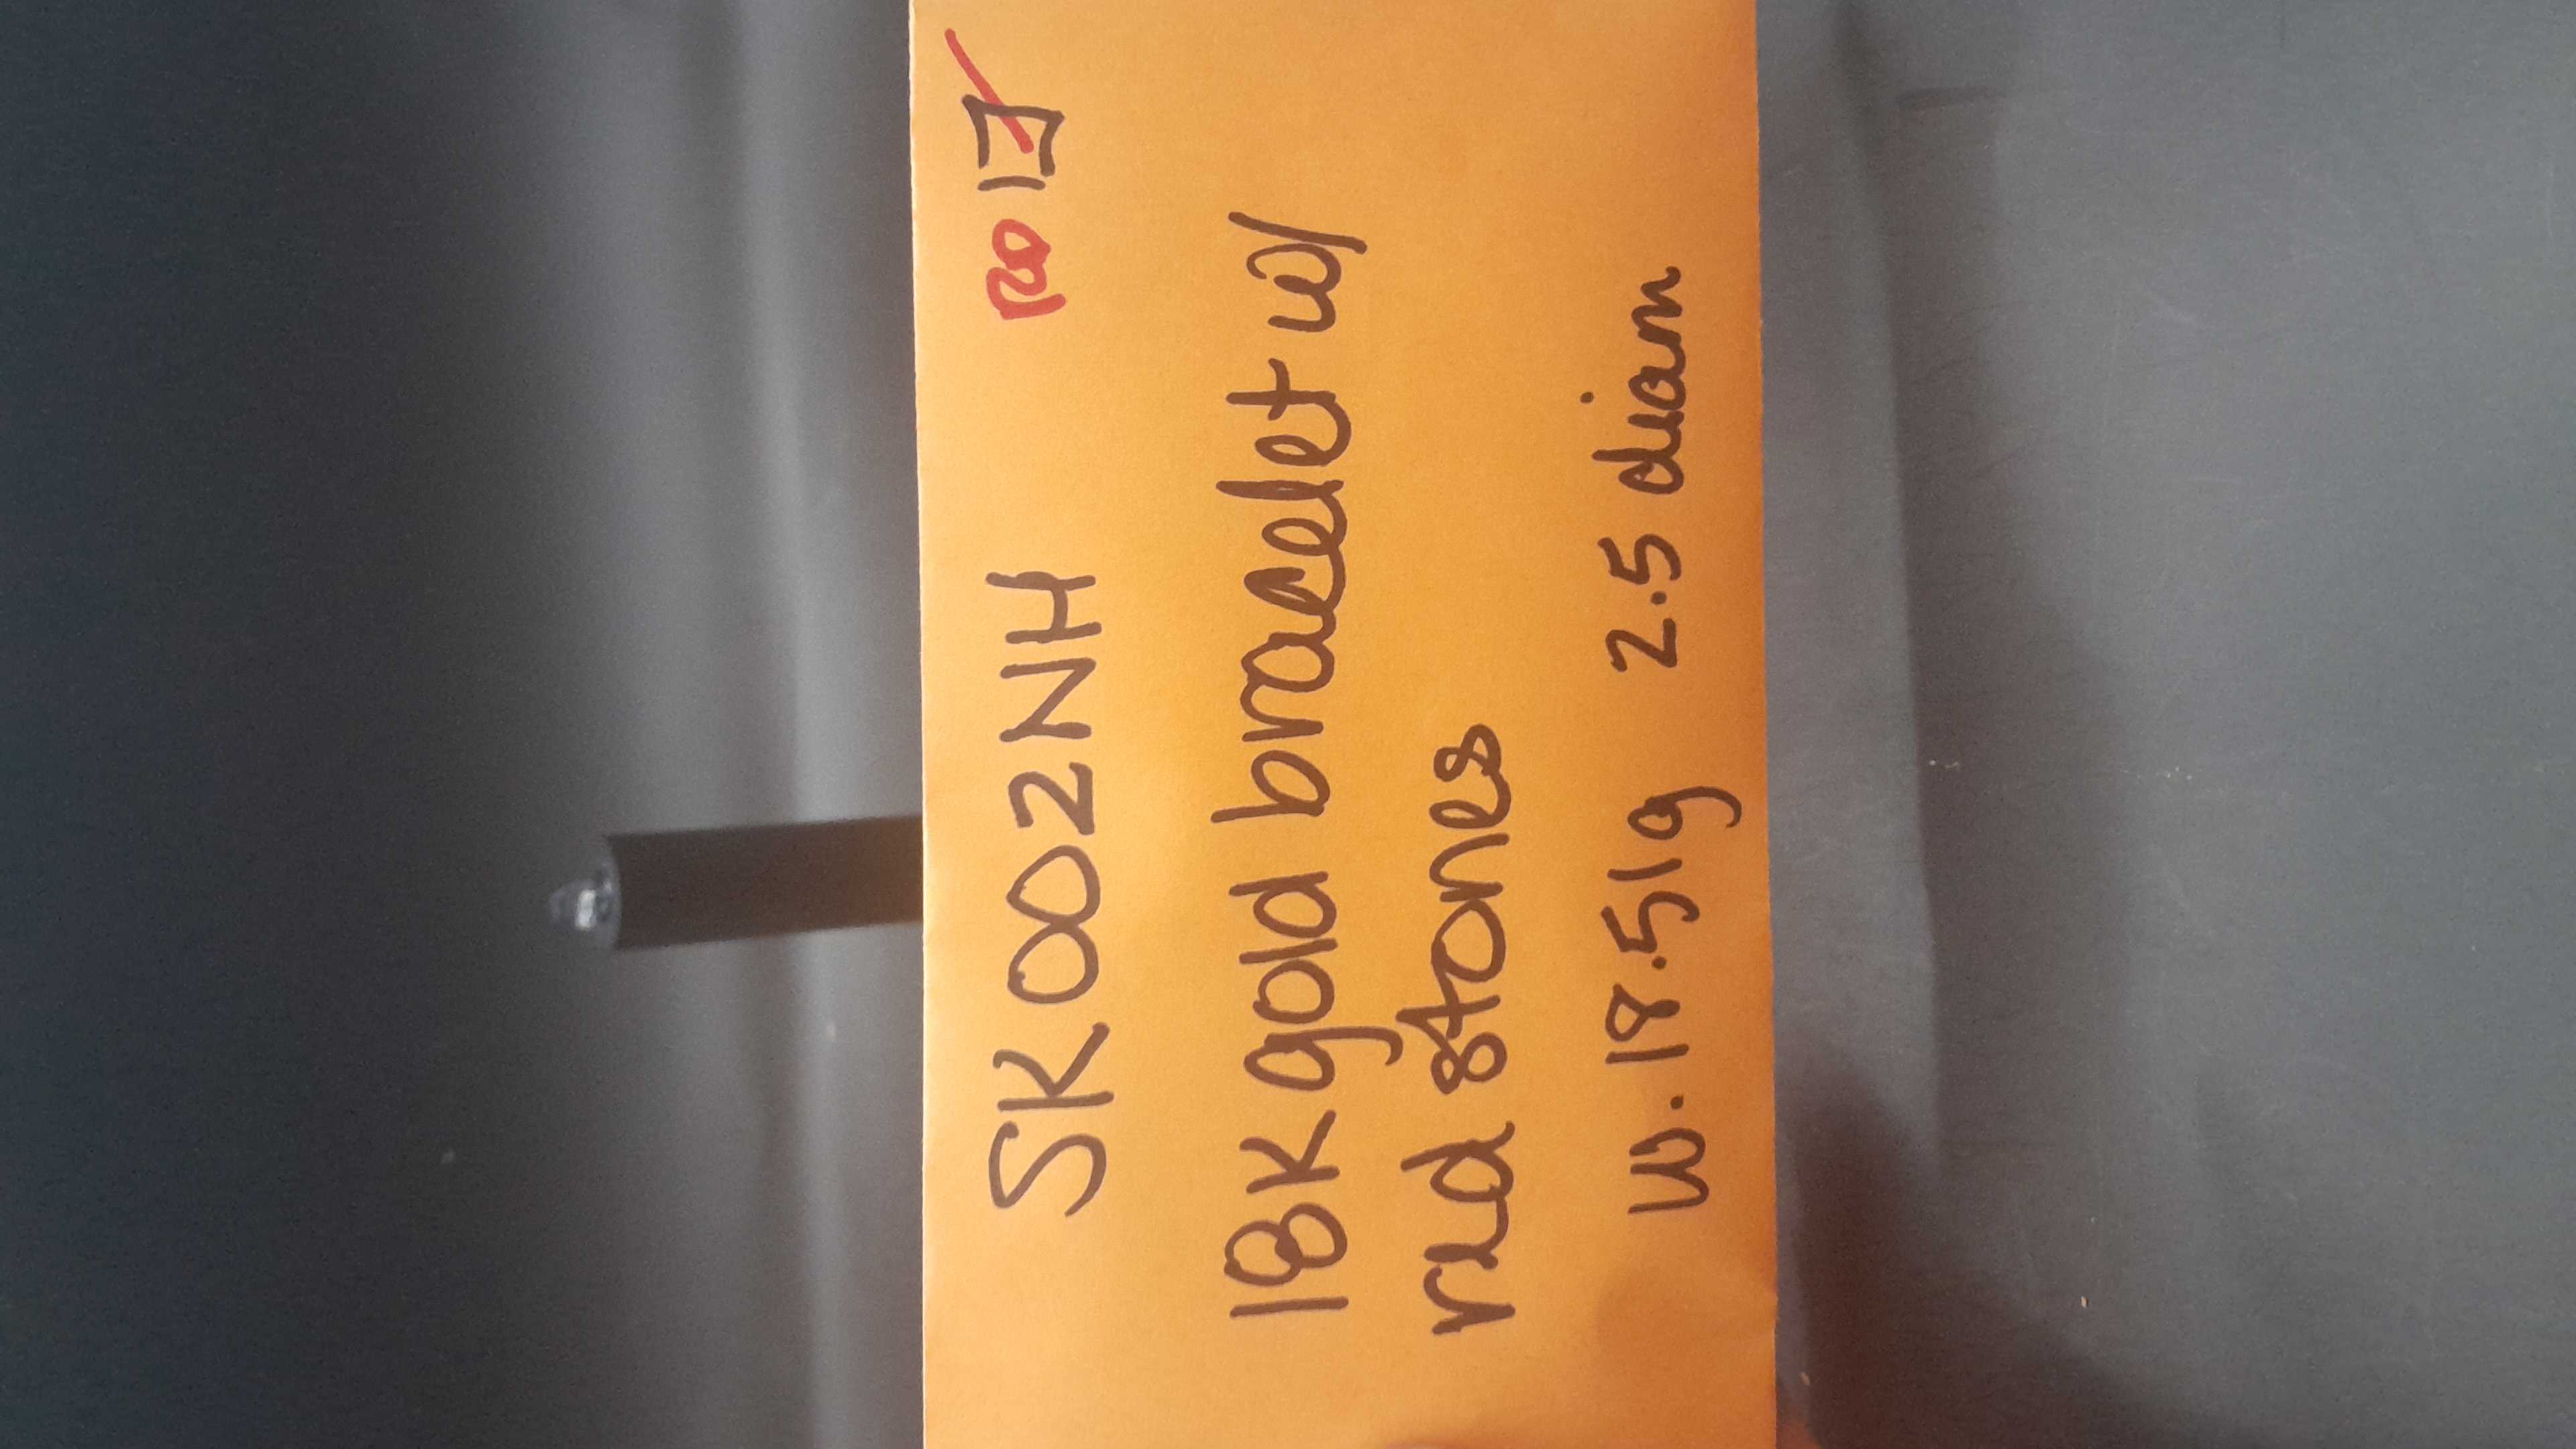 SK002NH
18K gold bracelet w/
red stones
W. 18.51g 2.5 diam